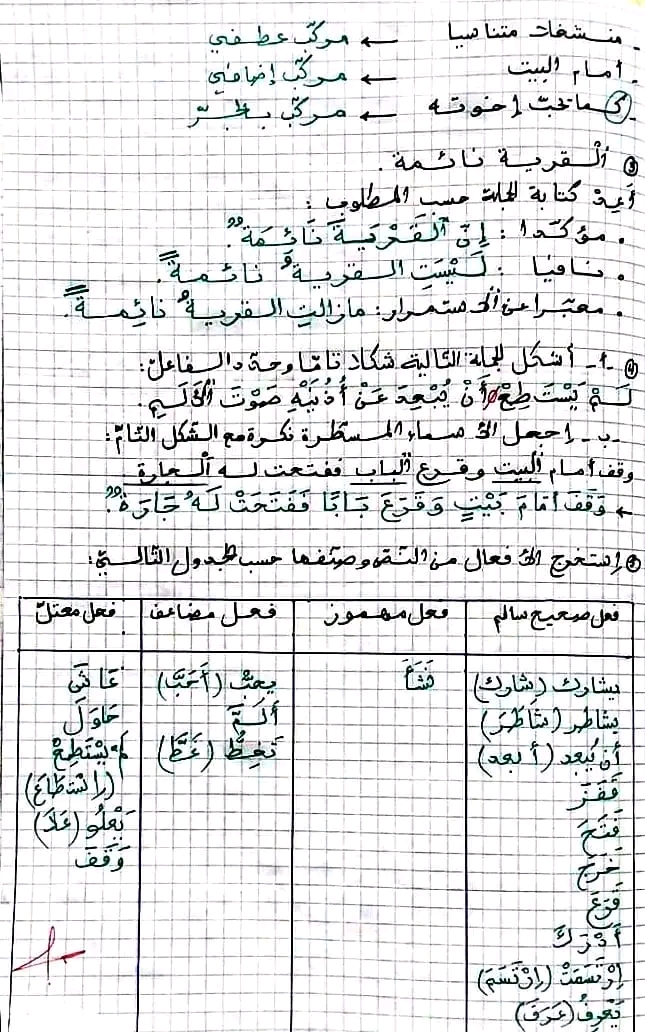 - منشغات متناسيا ← مركّب عطفي
- أمام البيت ← مركّب إضافي
- كما تحبّ إخوته ← مركّب بالجرّ
③ ألقرية نائمة.
أعد كتابة الجملة حسب المطلوب:
• مؤكّدا: إنّ ٱلقَرْيَةَ نَائِمَةٌ.
• نافيا: لَيْسَتِ القريةُ نائمةً.
• معبّرا عن الاستمرار: مازالتِ القريةُ نَائِمةً.
④ -أ- أشكل الجملة التالية شكلا تامّا وحدّد الفاعل:
لَمْ يَسْتَطِعْ أَنْ يُبْعِدَ عَنْ أُذُنَيْهِ صَوْتَ الأَلَمِ.
-ب- إجعل الأسماء المسطّرة نكرة مع الشكل التّامّ:
وقف أمام البيت وقرع الباب ففتحت له الجارة
← وَقَفَ أمَامَ بَيْتٍ وَقَرَعَ بَابًا فَفَتَحَتْ لَهُ جَارَةٌ.
⑤ إستخرج الأفعال من النّصّ وصنّفها حسب الجدول التّالي:
فعل صحيح سالم | فعل مهموز | فعل مضاعف | فعل معتلّ
يشارك (شارك) | نَشَأَ | يحبّ (أَحَبَّ) | عَاشَ
يشاطر (شَاطَرَ) | أَلَمَّ | حَاوَلَ
أن يُبعد (أبعد) | تغطّ (غَطَّ) | لم يَسْتَطِعْ
قَفَزَ | (اسْتَطَاعَ)
فَتَحَ | يَعْلُو (عَلَا)
خَرَجَ | وَقَفَ
قَرَعَ
أَدْرَكَ
اِرْتَسَمَتْ (اِرْتَسَمَ)
يَعْرِفُ (عَرَفَ)